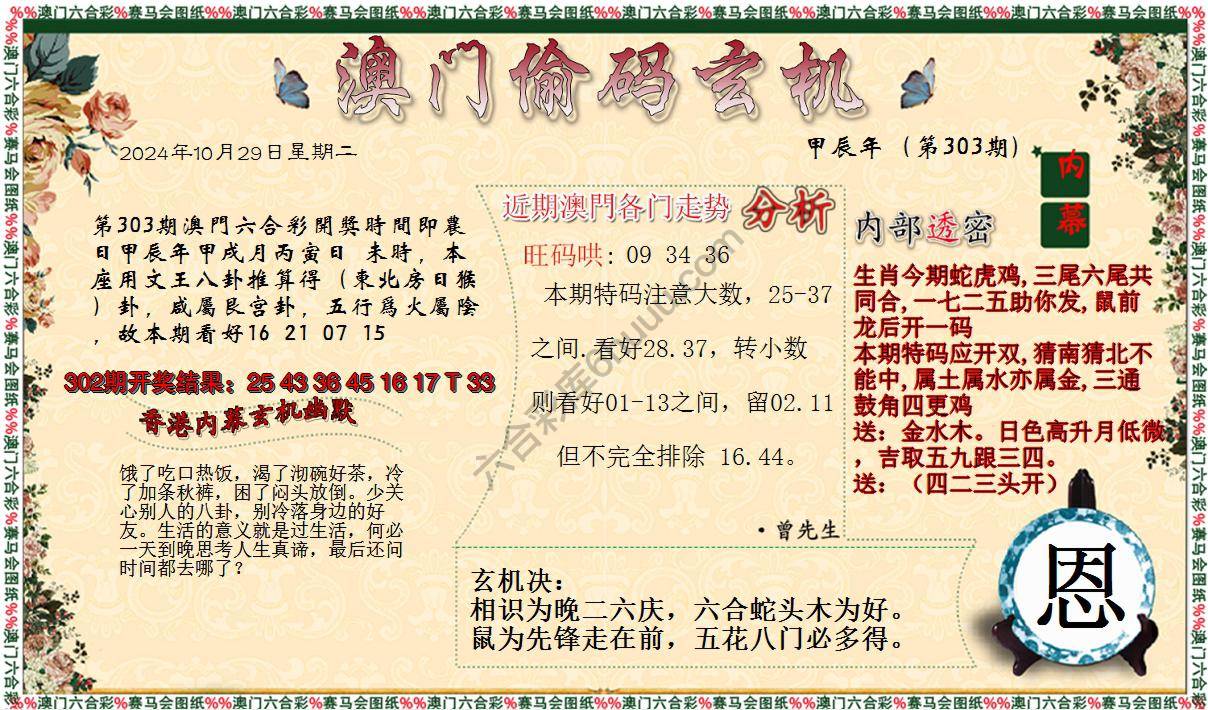 %%澳门六合彩%赛马会图纸%%澳门六合彩%赛马会图纸%%澳门六合彩%赛马会图纸%%澳门六合彩%赛马会图纸%%澳门六合彩%赛马会图纸%%澳门六合彩%赛马会图纸%%
澳门偷码玄机
2024年10月29日星期二
甲辰年（第303期）
内
幕
第303期澳門六合彩開獎時間即農
日甲辰年甲戌月丙寅日 未時，本
座用文王八卦推算得（東北房日猴
）卦，咸屬艮宫卦，五行爲火屬陰
，故本期看好16 21 07 15
302期开奖结果：25 43 36 45 16 17 T 33
香港内幕玄机幽默
饿了吃口热饭，渴了沏碗好茶，冷
了加条秋裤，困了闷头放倒。少关
心别人的八卦，别冷落身边的好
友。生活的意义就是过生活，何必
一天到晚思考人生真谛，最后还问
时间都去哪了？
近期澳門各门走势 分析
旺码哄: 09 34 36
本期特码注意大数，25-37
之间.看好28.37，转小数
则看好01-13之间，留02.11
但不完全排除 16.44。
·曾先生
内部透密
生肖今期蛇虎鸡,三尾六尾共
同合,一七二五助你发,鼠前
龙后开一码
本期特码应开双,猜南猜北不
能中,属土属水亦属金,三通
鼓角四更鸡
送：金水木。日色高升月低微
，吉取五九跟三四。
送：（四二三头开）
玄机决：
相识为晚二六庆，六合蛇头木为好。
鼠为先锋走在前，五花八门必多得。
恩
%%澳门六合彩%赛马会图纸%%澳门六合彩%赛马会图纸%%澳门六合彩%赛马会图纸%%澳门六合彩%赛马会图纸%%澳门六合彩%赛马会图纸%%澳门六合彩%赛马会图纸%%